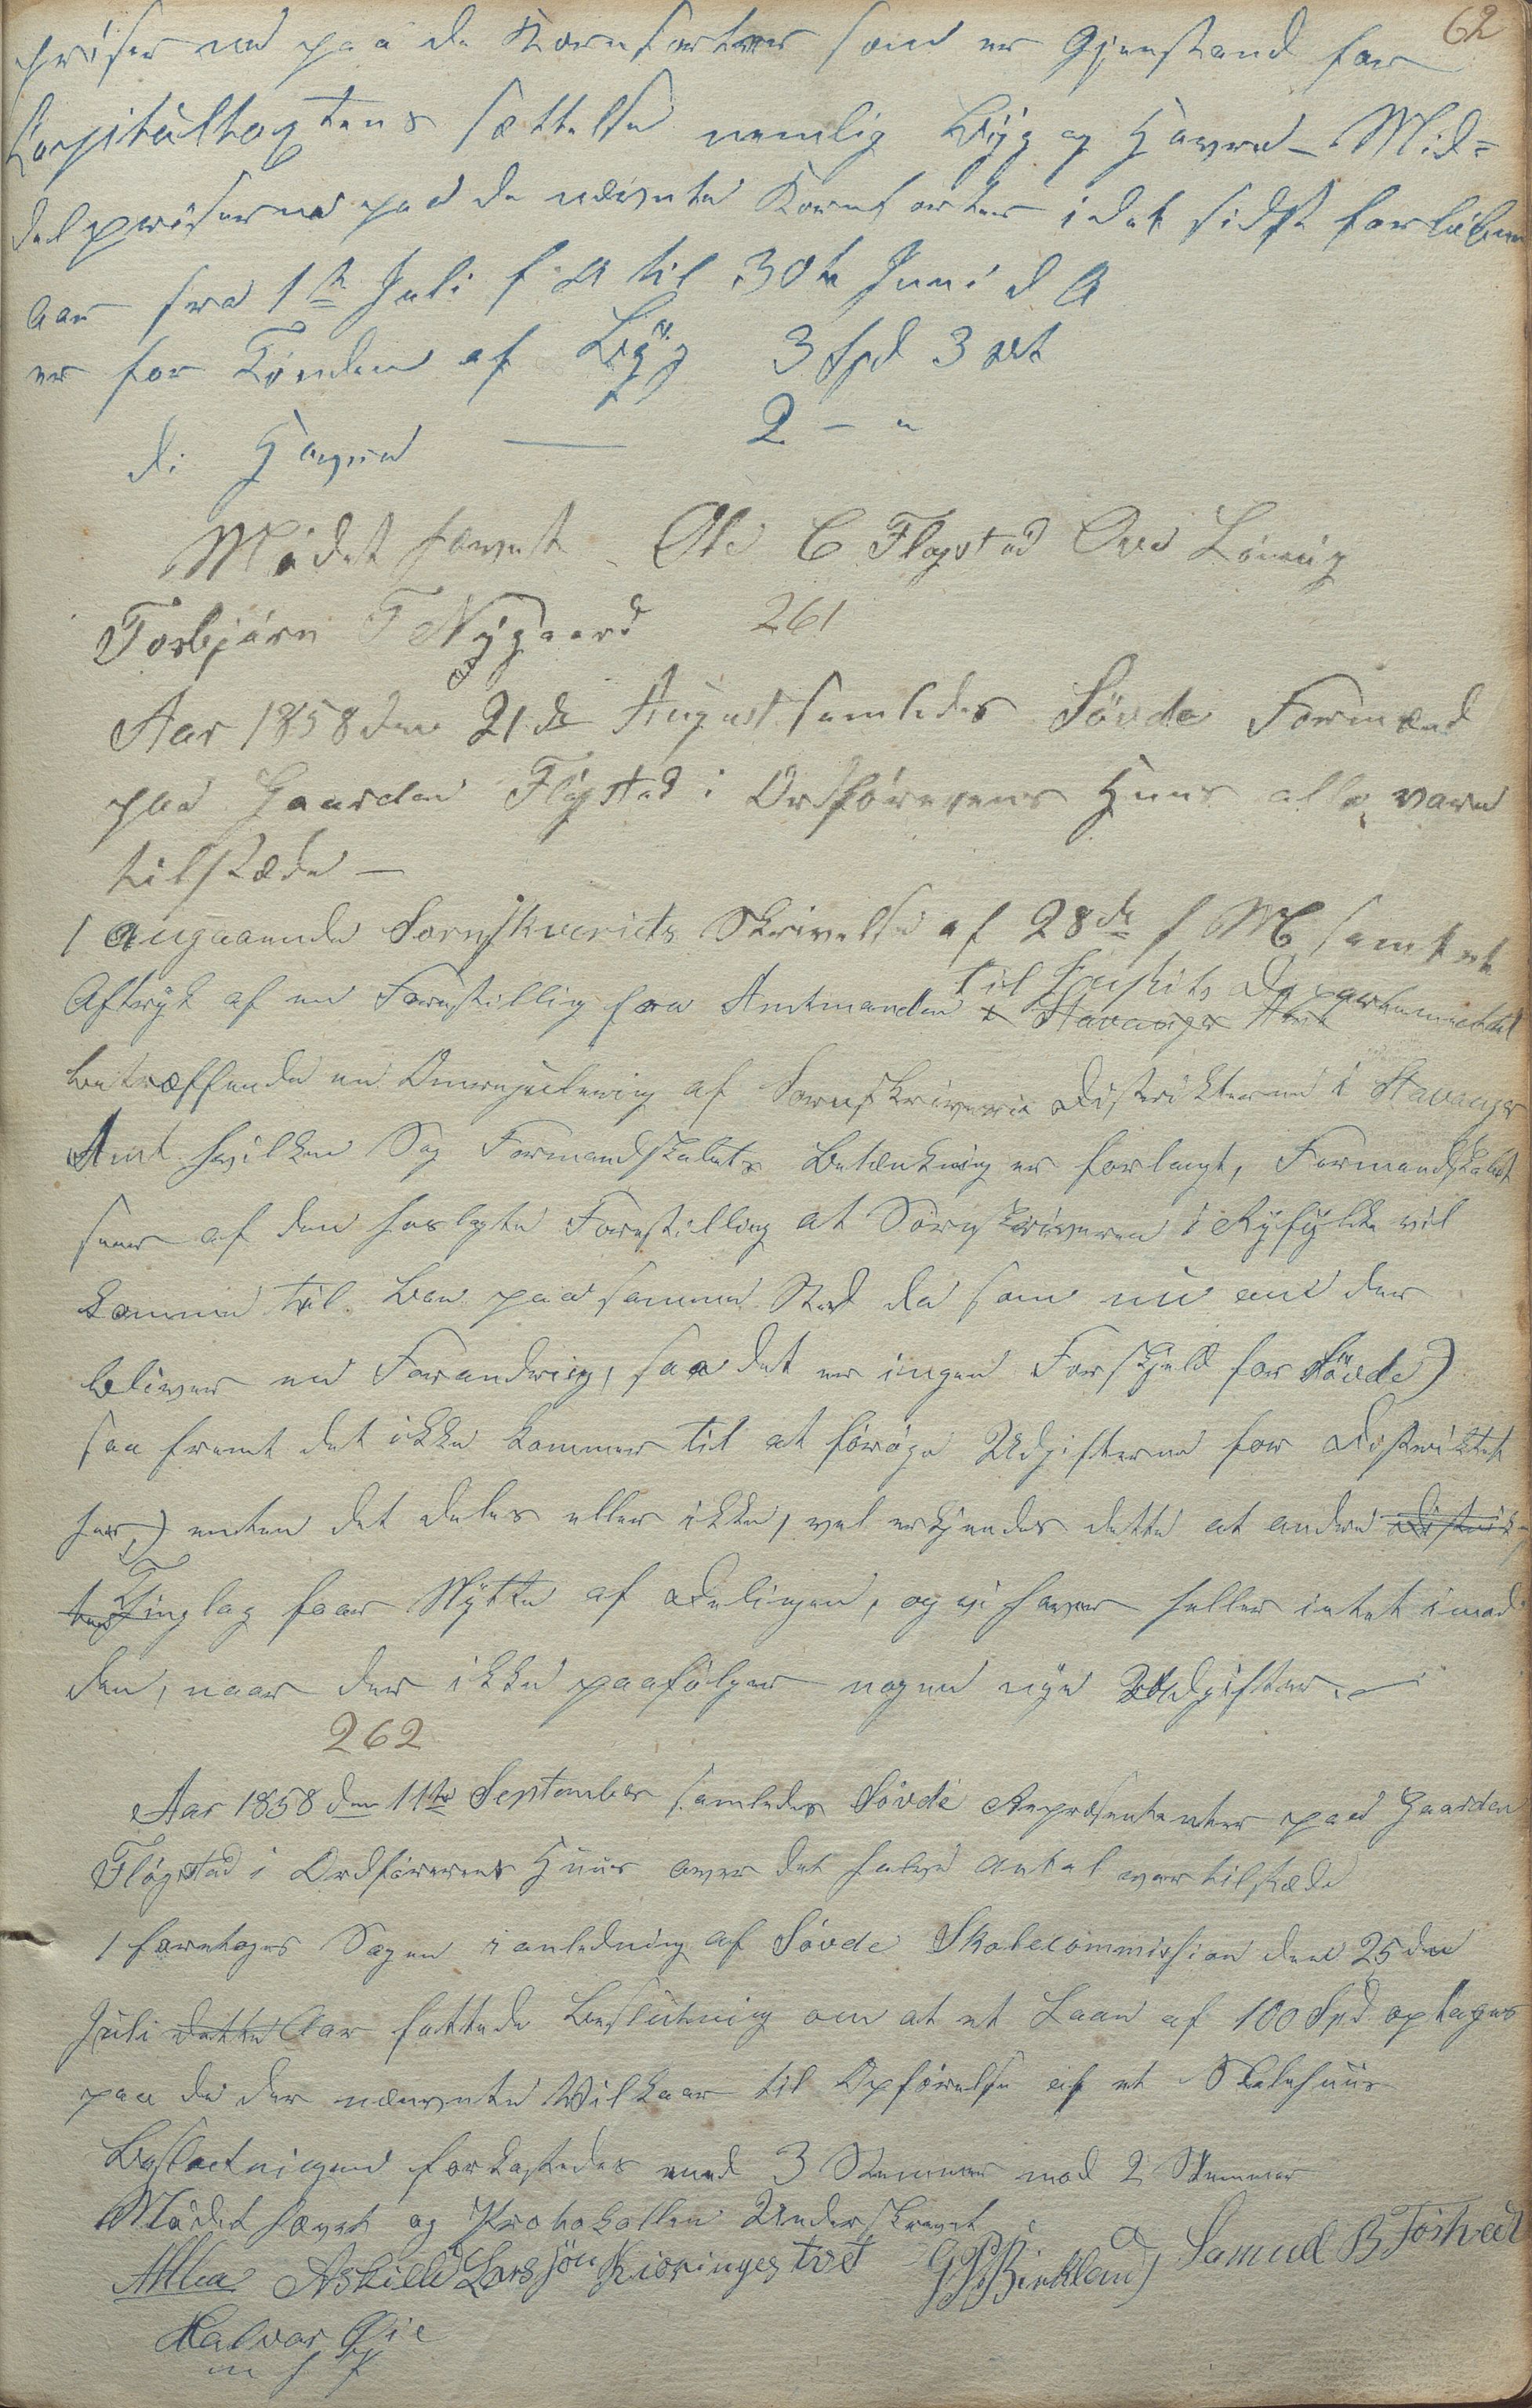 62
priser ned paa de Kornsorter som er Gjenstand for
Kapitultaxtens sættelse nemlig Byg og Havre - Mid=
delpriserne paa de nævnte Kornsorter i det sidst forløbne
Aar fra 1ste Juli f A til 30te Juni d A
er for Tønden af Byg 3 Spd 3 ort
di Havre — 2 - "
Mødet hævet Ole C Flogstad Ove Lönning
Torbjørn T Nygaard 261
Aar 1858 den 21de August samledes Søvde Formænd
paa Gaarden Fløgstad i Ordførerens Huus alle vare
tilstæde —
1 angaaende Sorenskveriets Skrivelse af 28de f M samt et
Aftryk af en Forestilling fra Amtmanden til Justits Departementet
i Stavanger Amt
betræffende en Omregulering af Sorenskriverie Distrikterne i Stavanger
Amt hvilken Sag Formandskabets Betænkning er forlangt, Formandskabet
seer af den hoslagte Forestilling at Sorenskriveren i Ryfylke vil
komme til boe paa samme Sted da som nu om der
bliver en Forandring, saa det er ingen Forskjeld for Søvde)
saa fremt det ikke kommer til at forøge Udgifterne for Distriktet
her,) enten det deles eller ikke, vel erkjendes dette at andre Distrik
ter Tinglag faar Nytte af Delingen, og vi haver heller intet imod
den, naar der ikke paafølger nogen nye Udgifter. —
262
Aar 1858 den 11te September samledes Søvde Repræsentanter paa Gaarden
Fløgstad i Ordførerens Huus over det halve Antal var tilstæde
1 foretoges Sagen i anledning af Søvde Skolecommission den 25de
Juli dette Aar fattede Beslutning om at et Laan af 100 Spd optages
paa de der nævnte Vilkaar til Opførelse af et Skolehuus
Beslutningen forkastedes med 3 Stemmer mod 2 Stemmer
Mødet hævet og Protokollen Underskrevet
Askild Larssön Kioringes tvet G Birkland Samuel B Tøstved
Halvor Øie
m f P